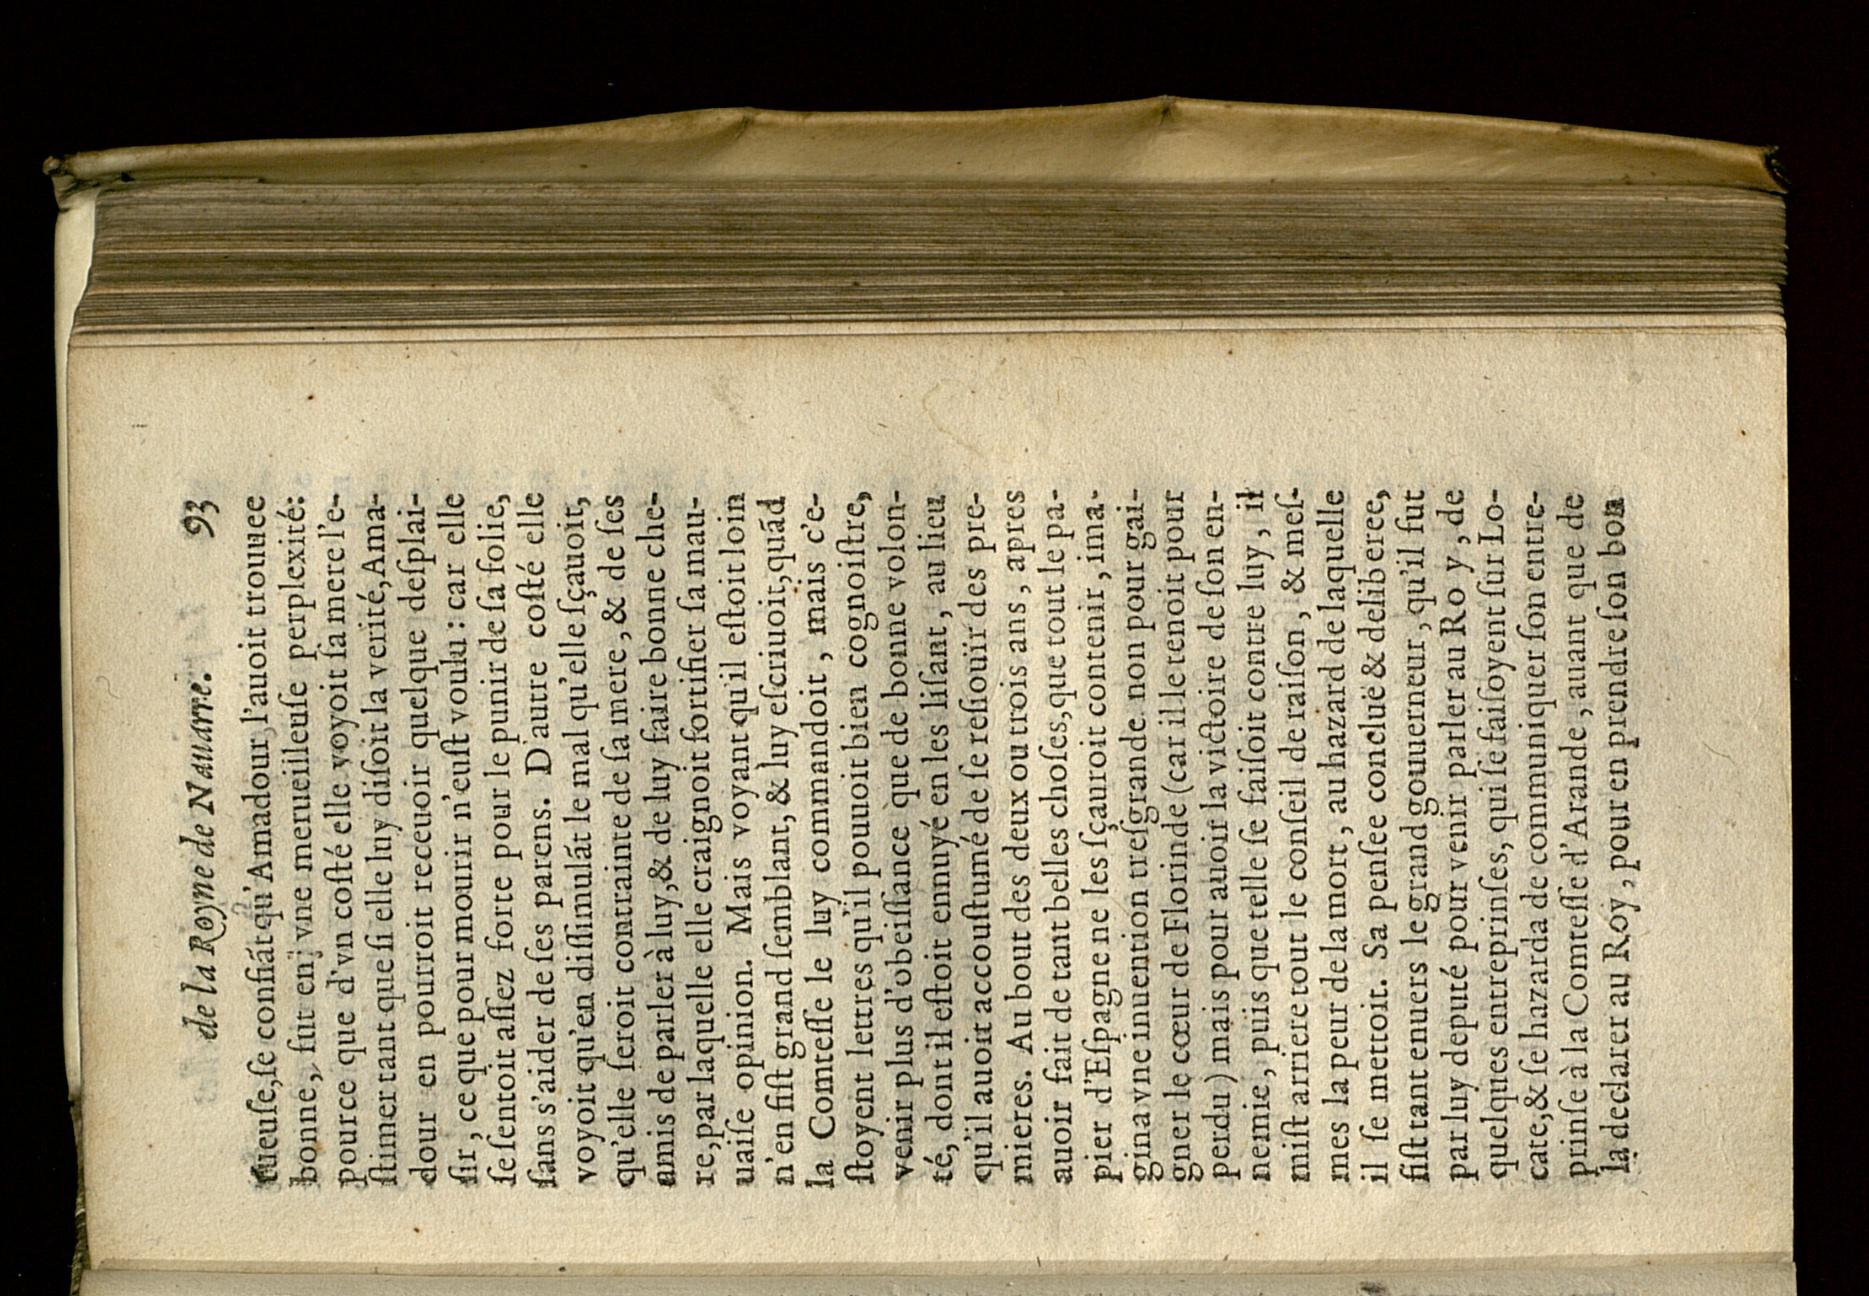 de la Royne de Nauarre. 93
ctueuse,se cõfiãt qu'Amadour l'auoit trouuee
bonne, fut en vne merueilleuse perplexité:
pource que d'vn costé elle voyoit sa mere l'e-
stimer tant que si elle luy disoit la verité, Ama-
dour en pourroit receuoir quelque desplai-
sir, ce que pour mourir n'eust voulu: car elle
se sentoit assez forte pour le punir de sa folie,
sans s'aider de ses parens. D'autre costé elle
voyoit qu'en dissimulãt le mal qu'elle sçauoit,
qu'elle seroit contrainte de sa mere, & de ses
amis de parler à luy,& de luy faire bonne che-
re,par laquelle elle craignoit fortifier sa mau-
uaise opinion. Mais voyant qu'il estoit loin
n'en fist grand semblant, & luy escriuoit,quãd
la Comtesse le luy commandoit, mais c'e-
stoyent lettres qu'il pouuoit bien cognoistre,
venir plus d'obeissance que de bonne volon-
té, dont il estoit ennuyé en les lisant, au lieu
qu'il auoit accoustumé de se resiouïr des pre-
mieres. Au bout des deux ou trois ans, apres
auoir fait de tant belles choses,que tout le pa-
pier d'Espagne ne les sçauroit contenir, ima-
gina vne inuention tresgrande. non pour gai-
gner le cœur de Florinde (car il le tenoit pour
perdu) mais pour auoir la victoire de son en-
nemie, puis que telle se faisoit contre luy, il
mist arriere tout le conseil de raison, & mes-
mes la peur de la mort, au hazard de laquelle
il se mettoit. Sa pensee concluë & deliberee,
fist tant enuers le grand gouuerneur, qu'il fut
par luy deputé pour venir parler au Roy, de
quelques entreprinses, qui se faisoyent sur Lo-
cate,& se hazarda de communiquer son entre-
prinse à la Comtesse d'Arande, auant que de
la declarer au Roy, pour en prendre son bon